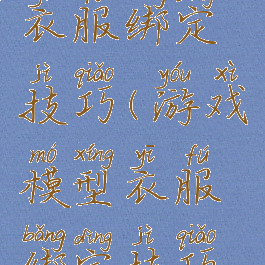 衣服绑定
jì qiǎo yóu xì
技巧(游戏
mó xíng yī fú
模型衣服
bǎng dìng jì qiǎo
绑定技巧